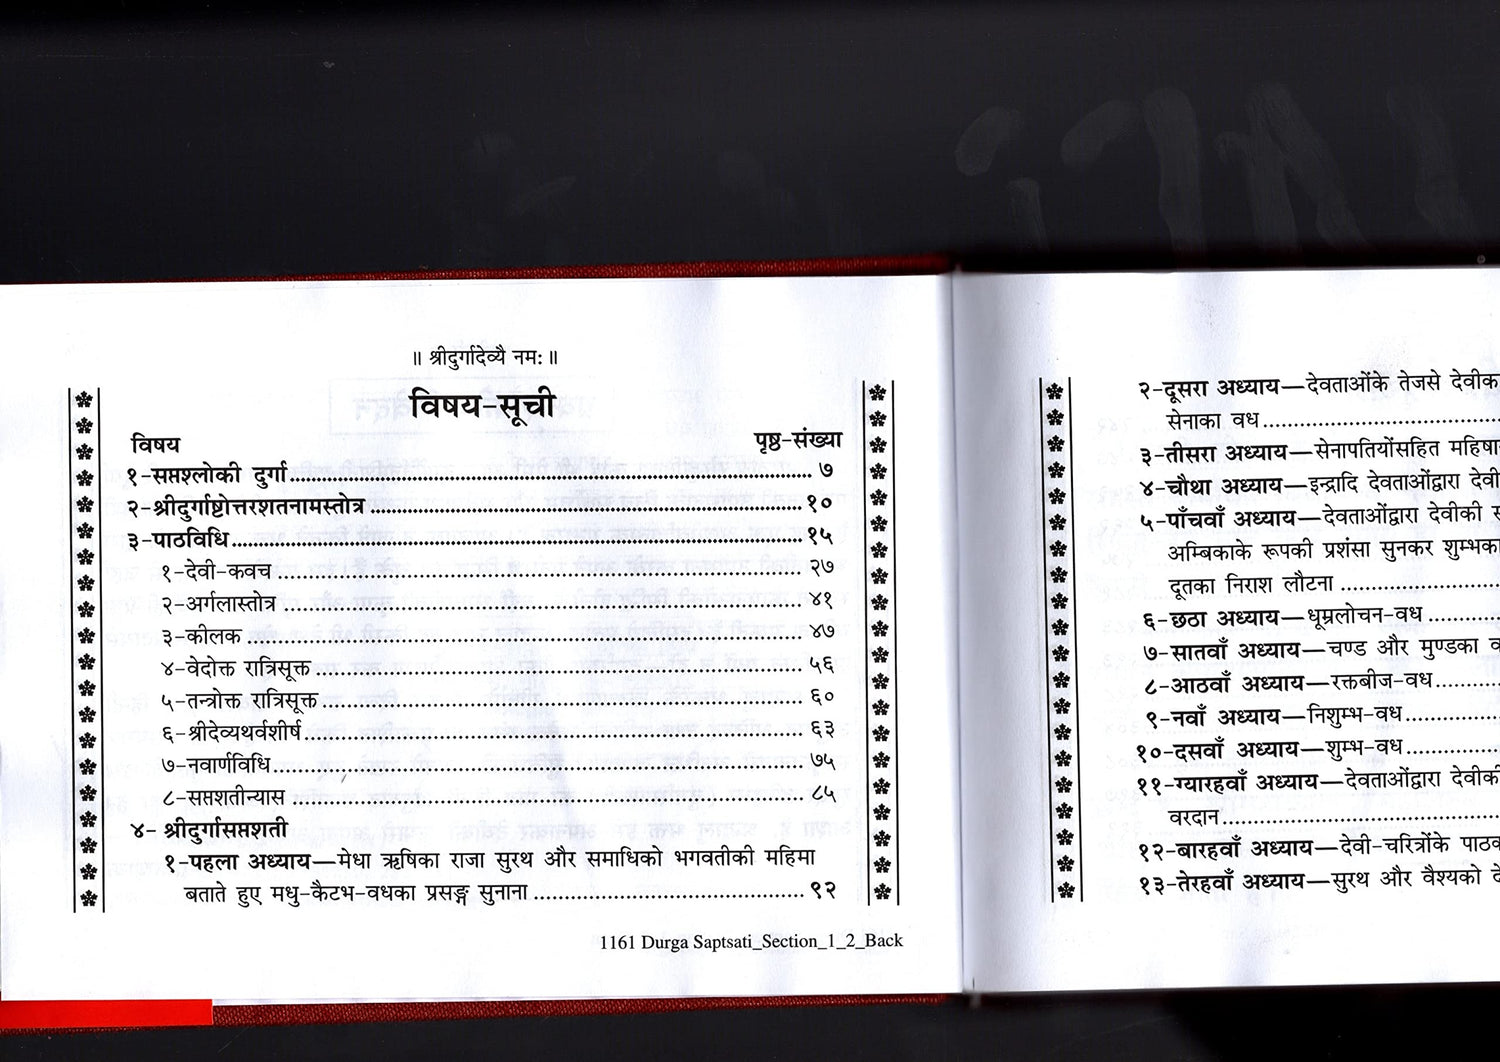 ॥ श्रीदुर्गादेव्यै नमः ॥
विषय-सूची
विषय पृष्ठ-संख्या
१-सप्तश्लोकी दुर्गा.......... ७
२-श्रीदुर्गाष्टोत्तरशतनामस्तोत्र.......... १०
३-पाठविधि.......... १५
१-देवी-कवच.......... २७
२-अर्गलास्तोत्र.......... ४१
३-कीलक.......... ४७
४-वेदोक्त रात्रिसूक्त.......... ५६
५-तन्त्रोक्त रात्रिसूक्त.......... ६०
६-श्रीदेव्यथर्वशीर्ष.......... ६३
७-नवार्णविधि.......... ७५
८-सप्तशतीन्यास.......... ८५
४- श्रीदुर्गासप्तशती
१-पहला अध्याय—मेधा ऋषिका राजा सुरथ और समाधिको भगवतीकी महिमा
बताते हुए मधु-कैटभ-वधका प्रसङ्ग सुनाना.......... ९२
1161 Durga Saptsati_Section_1_2_Back
२-दूसरा अध्याय—देवताओंके तेजसे
सेनाका वध..........
३-तीसरा अध्याय—सेनापतियोंसहित
४-चौथा अध्याय—इन्द्रादि देवताओंद्वारा देवी
५-पाँचवाँ अध्याय—देवताओंद्वारा देवीकी
अम्बिकाके रूपकी प्रशंसा सुनकर
दूतका निराश लौटना..........
६-छठा अध्याय—धूम्रलोचन-वध..........
७-सातवाँ अध्याय—चण्ड और मुण्डका
८-आठवाँ अध्याय—रक्तबीज-वध..........
९-नवाँ अध्याय—निशुम्भ-वध..........
१०-दसवाँ अध्याय—शुम्भ-वध..........
११-ग्यारहवाँ अध्याय—देवताओंद्वारा देवीकी
वरदान..........
१२-बारहवाँ अध्याय—देवी-चरित्रोंके
१३-तेरहवाँ अध्याय—सुरथ और वैश्यको